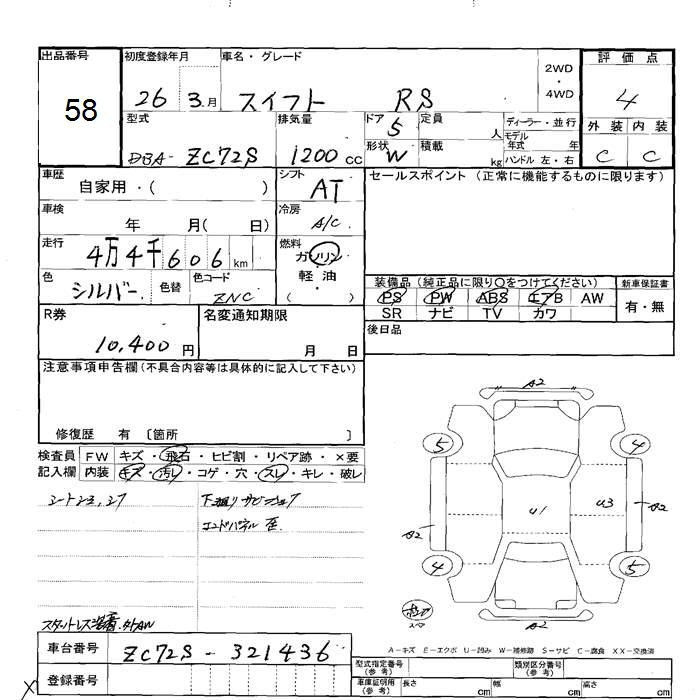 出品番号 初度登録年月 車名・グレード 2WD ・ 4WD 評価点
58 26 3.月 スイフト RS 4
型式 排気量 ドア 5 定員 人 ディーラー・並行 外装 内装
DBA- ZC72S 1200 cc 形状 W 積載 kg モデル年式 年 ハンドル 左・右 C C
車歴 自家用・( ) シフト AT セールスポイント (正常に機能するものに限ります)
車検 年 月( 日) 冷房 A/C
走行 4万4千606 km 燃料 ガソリン
色 シルバー 色替 色コード ZNC 軽油 ( )
装備品 (純正品に限り○をつけてください) 新車保証書
PS PW ABS エアB AW 有・無
SR ナビ TV カワ
R券 10,400 円 名変通知期限 月 日 後日品
注意事項申告欄 (不具合内容等は具体的に記入して下さい)
修復歴 有 〔箇所 〕
検査員 FW キズ・飛石・ヒビ割・リペア跡・×要
記入欄 内装 キズ・汚れ・コゲ・穴・スレ・キレ・破レ
エンドパネル 歪
A2
5 4
U1 U3
A2 A2
4 5
A2
A-キズ E-エクボ U-凹み W-補修跡 S-サビ C-腐食 XX-交換済
車台番号 ZC72S-321436
型式指定番号 (参考) 類別区分番号 (参考)
登録番号
車庫証明用 (参考) 長さ cm 幅 cm 高さ cm